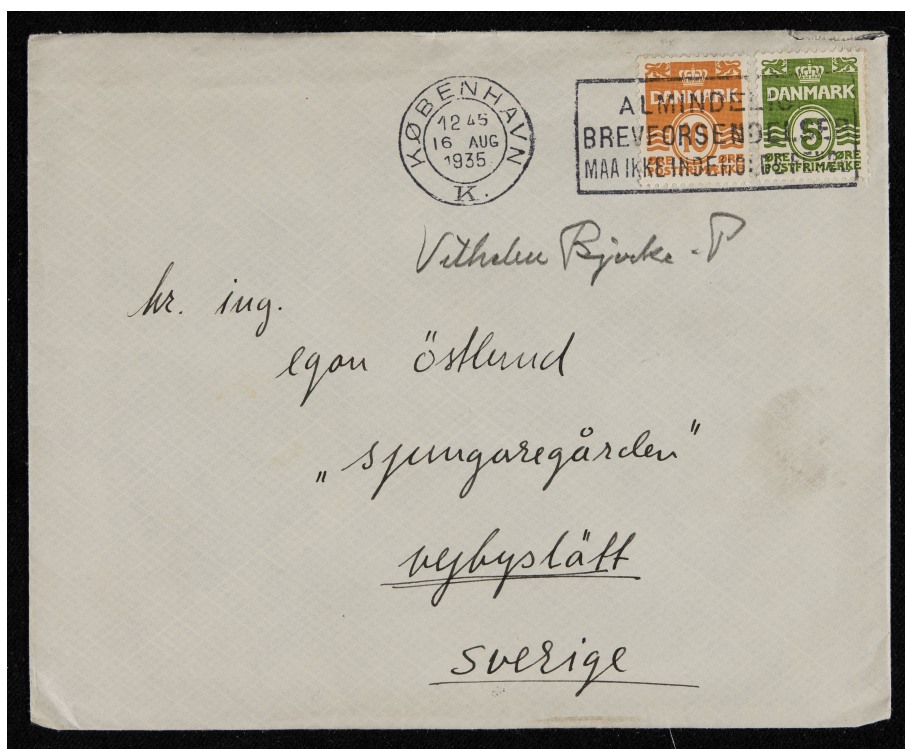 KØBENHAVN
12 45
16 AUG
1935
K.
ALMINDELIG
BREVFORSENDELSER
MAA IKKE INDEHOLDE PENGE
DANMARK
10
ØRE ØRE
POSTFRIMÆRKE
DANMARK
5
ØRE ØRE
POSTFRIMÆRKE
Vilhelm Bjerke-P
hr. ing.
egon östlund
„sjungaregården"
vejbyslätt
sverige